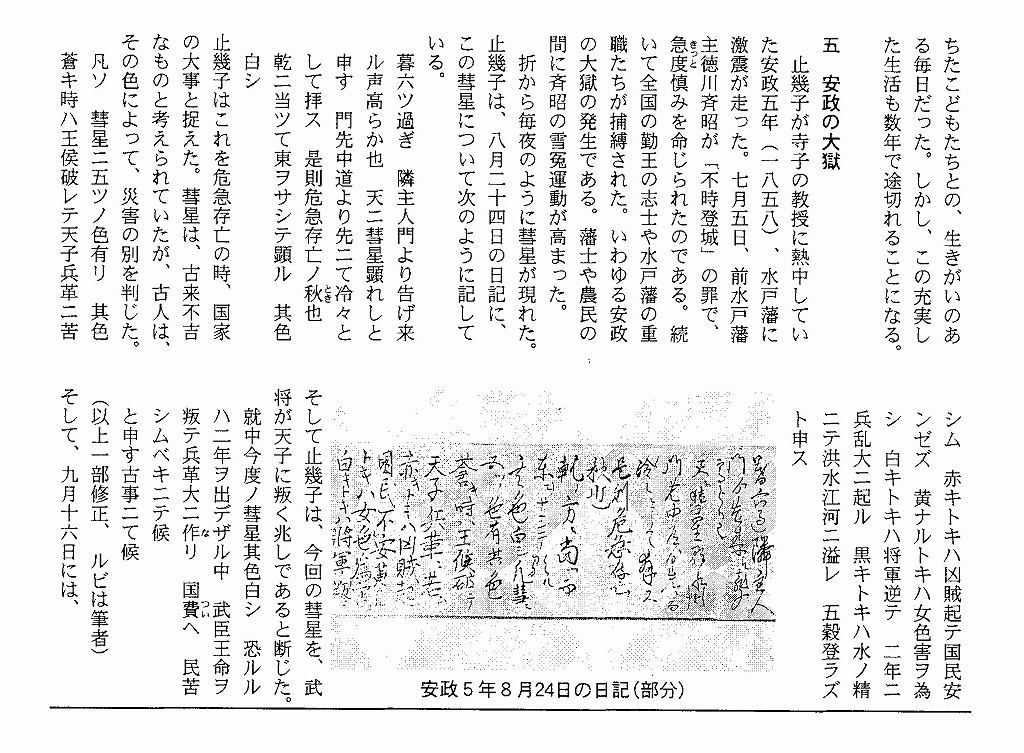 ちたこどもたちとの、生きがいのあ
る毎日だった。しかし、この充実し
た生活も数年で途切れることになる。
五　安政の大獄
止幾子が寺子の教授に熱中してい
た安政五年（一八五八）、水戸藩に
激震が走った。七月五日、前水戸藩
主徳川斉昭が「不時登城」の罪で、
きっと
急度慎みを命じられたのである。続
いて全国の勤王の志士や水戸藩の重
職たちが捕縛された。いわゆる安政
の大獄の発生である。藩士や農民の
間に斉昭の雪冤運動が高まった。
折から毎夜のように彗星が現れた。
止幾子は、八月二十四日の日記に、
この彗星について次のように記して
いる。
暮六ツ過ぎ　隣主人門より告げ来
ル声高らか也　天ニ彗星顕れしと
申す　門先中道より先ニて冷々と
して拝ス　是則危急存亡ノ秋也
とき
乾ニ当ツて東ヲサシテ顕ル　其色
白シ
止幾子はこれを危急存亡の時、国家
の大事と捉えた。彗星は、古来不吉
なものと考えられていたが、古人は、
その色によって、災害の別を判じた。
凡ソ　彗星ニ五ツノ色有リ　其色
蒼キ時ハ王侯破レテ天子兵革ニ苦
シム　赤キトキハ凶賊起テ国民安
ンゼズ　黄ナルトキハ女色害ヲ為
シ　白キトキハ将軍逆テ　二年ニ
兵乱大ニ起ル　黒キトキハ水ノ精
ニテ洪水江河ニ溢レ　五穀登ラズ
ト申ス
安政５年８月24日の日記（部分）
そして止幾子は、今回の彗星を、武
将が天子に叛く兆しであると断じた。
就中今度ノ彗星其色白シ　恐ルル
ハ二年ヲ出デザル中　武臣王命ヲ
叛テ兵革大ニ作リ　国費へ　民苦
な
つい
シムベキニテ候
と申す古事ニて候
（以上一部修正、ルビは筆者）
そして、九月十六日には、